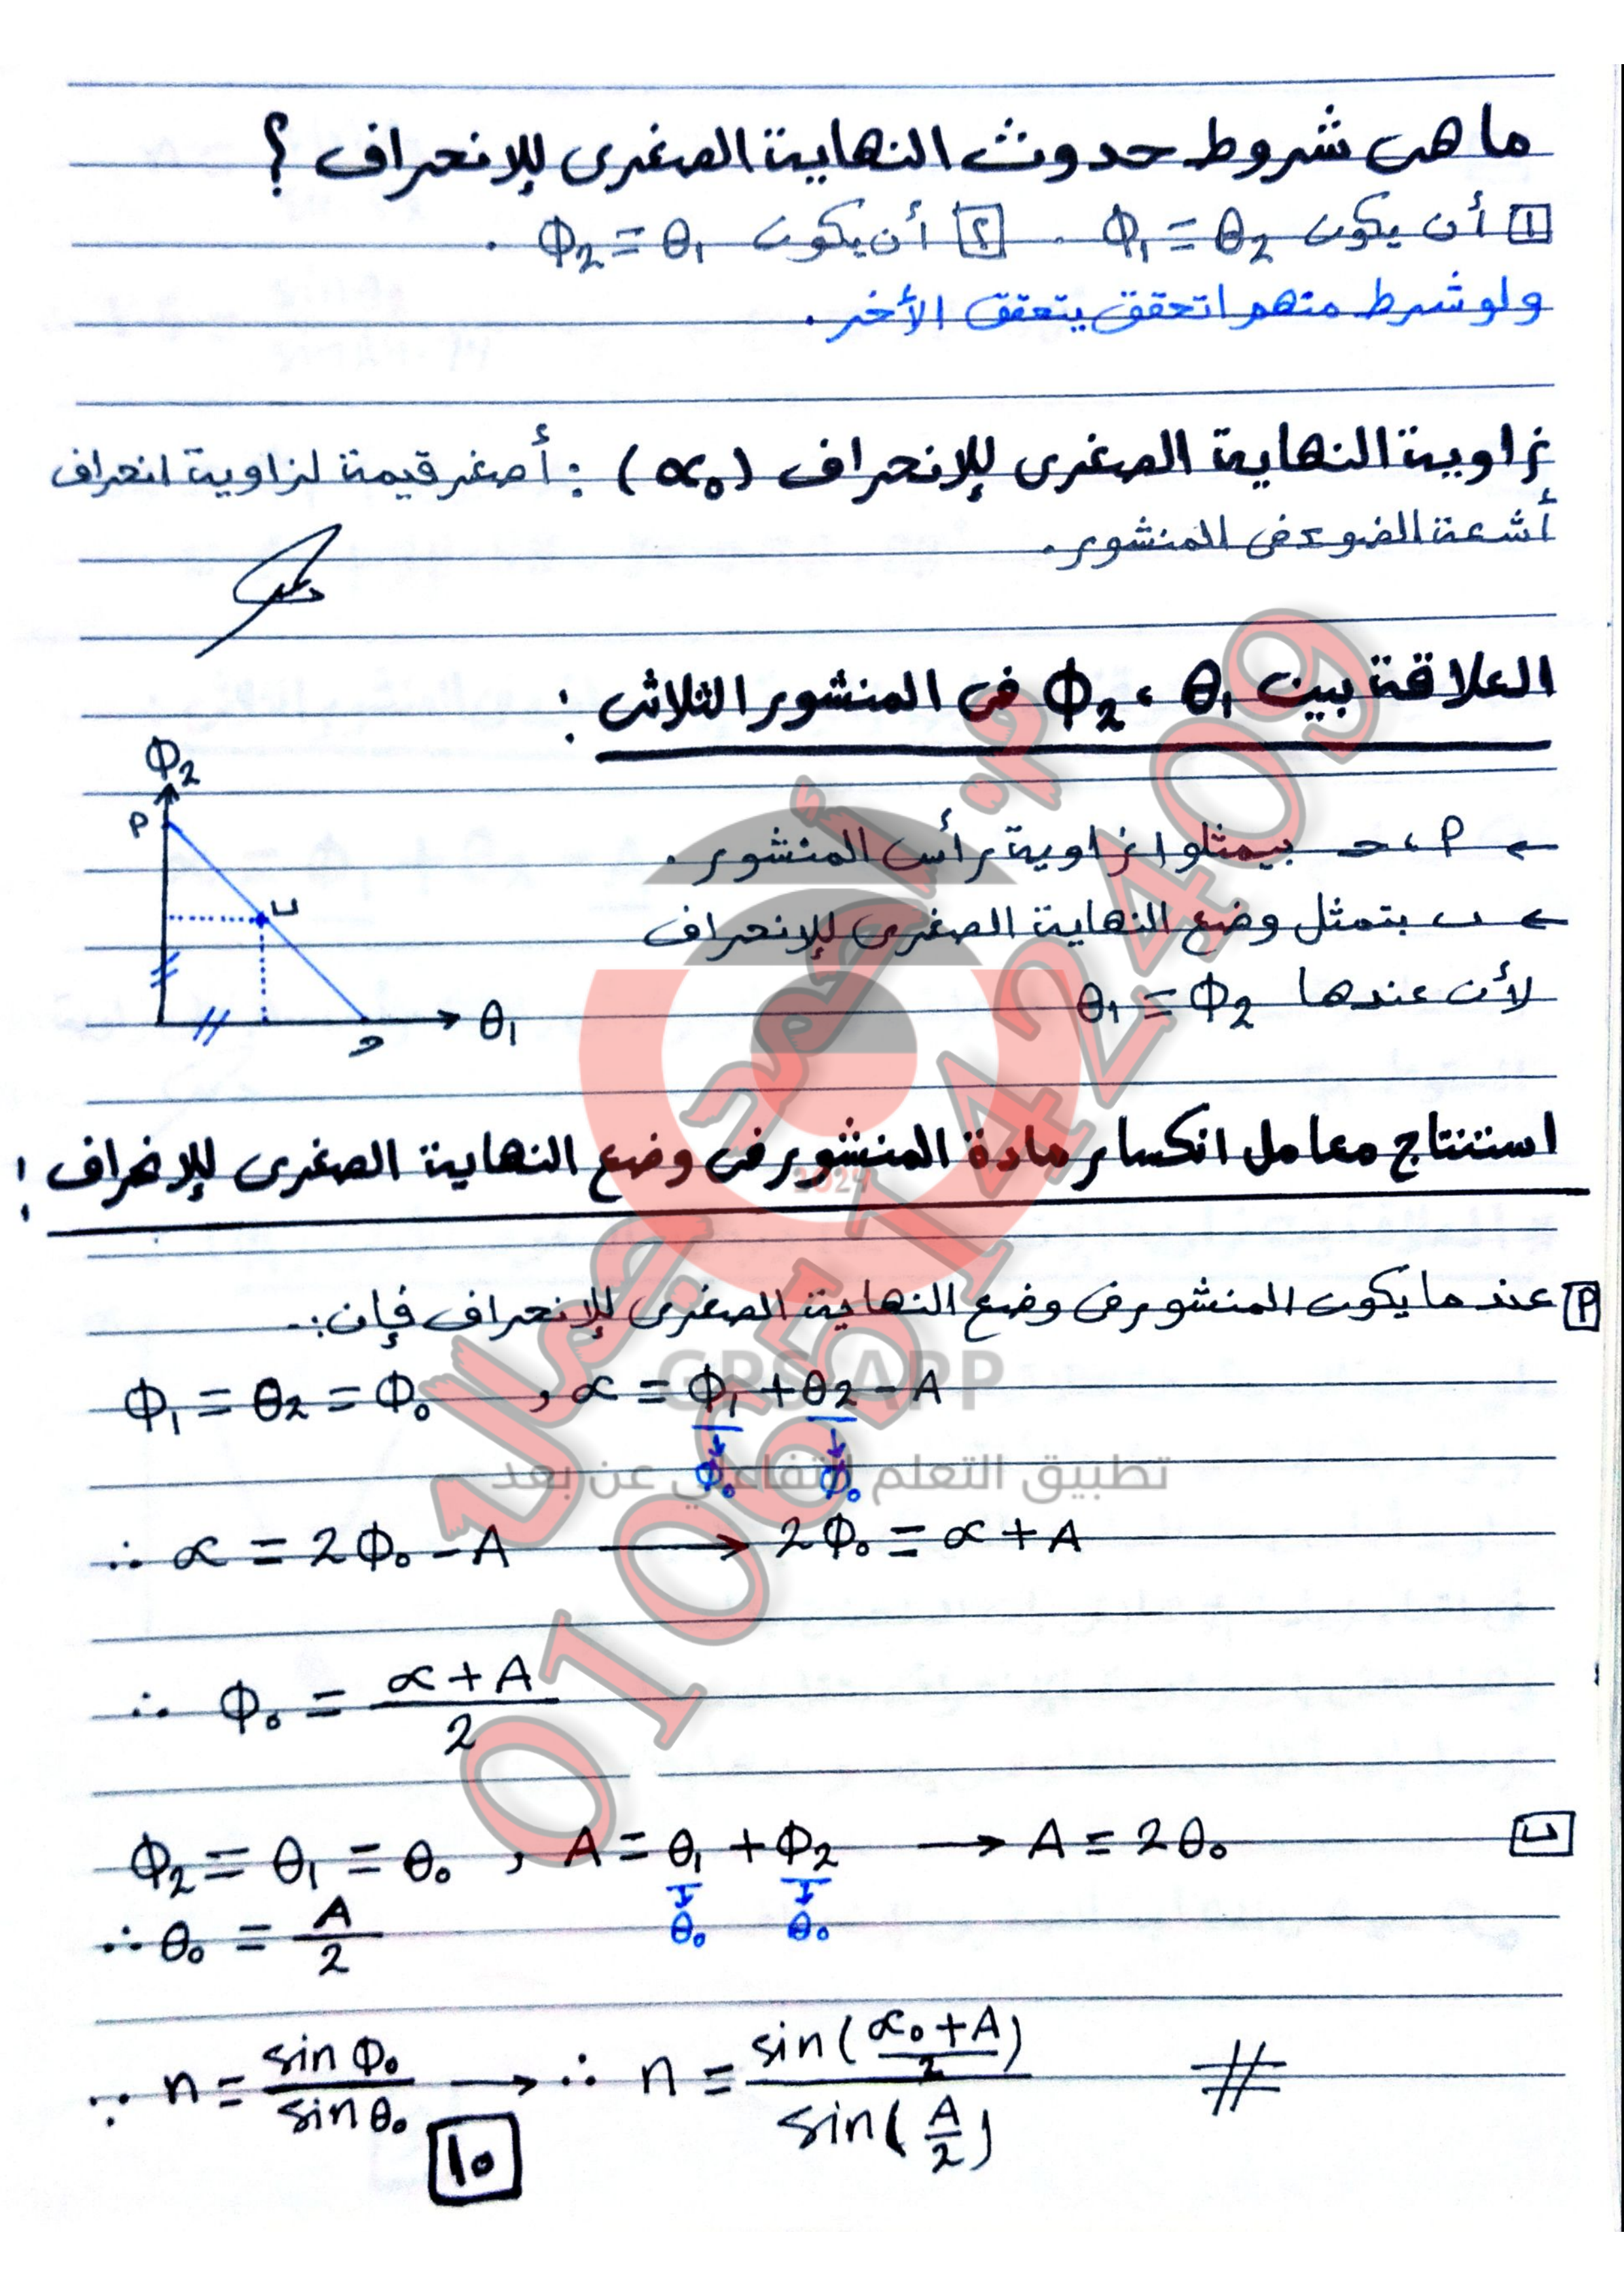 ما هى شروط حدوث النهاية الصغرى للإنحراف ؟
[١] أن يكون Φ₁ = θ₂ . [٢] أن يكون Φ₂ = θ₁ .
ولو شرط منهم اتحقق يتحقق الأخر .
زاوية النهاية الصغرى للإنحراف (α₀) : أصغر قيمة لزاوية انحراف
أشعة الضوء فى المنشور .
العلاقة بين θ₁ ، Φ₂ فى المنشور الثلاثى :
Φ₂
أ
ب
ج
θ₁
← أ ، ج بيمثلوا زاوية رأس المنشور .
← ب بتمثل وضع النهاية الصغرى للإنحراف
لأن عندها θ₁ = Φ₂
استنتاج معامل انكسار مادة المنشور فى وضع النهاية الصغرى للإنحراف :
[أ] عندما يكون المنشور فى وضع النهاية الصغرى للإنحراف فإن :-
Φ₁ = θ₂ = Φ₀ , α = Φ₁ + θ₂ - A
Φ₀ Φ₀
∴ α = 2Φ₀ - A → 2Φ₀ = α + A
∴ Φ₀ = (α + A)/2
[ب] Φ₂ = θ₁ = θ₀ , A = θ₁ + Φ₂ → A = 2θ₀
θ₀ θ₀
∴ θ₀ = A/2
∵ n = sin Φ₀ / sin θ₀ → ∴ n = sin((α₀ + A)/2) / sin(A/2) #
١٠
م. أحمد جمال
01065142409
2024
GPS APP
تطبيق التعلم التفاعلي عن بعد